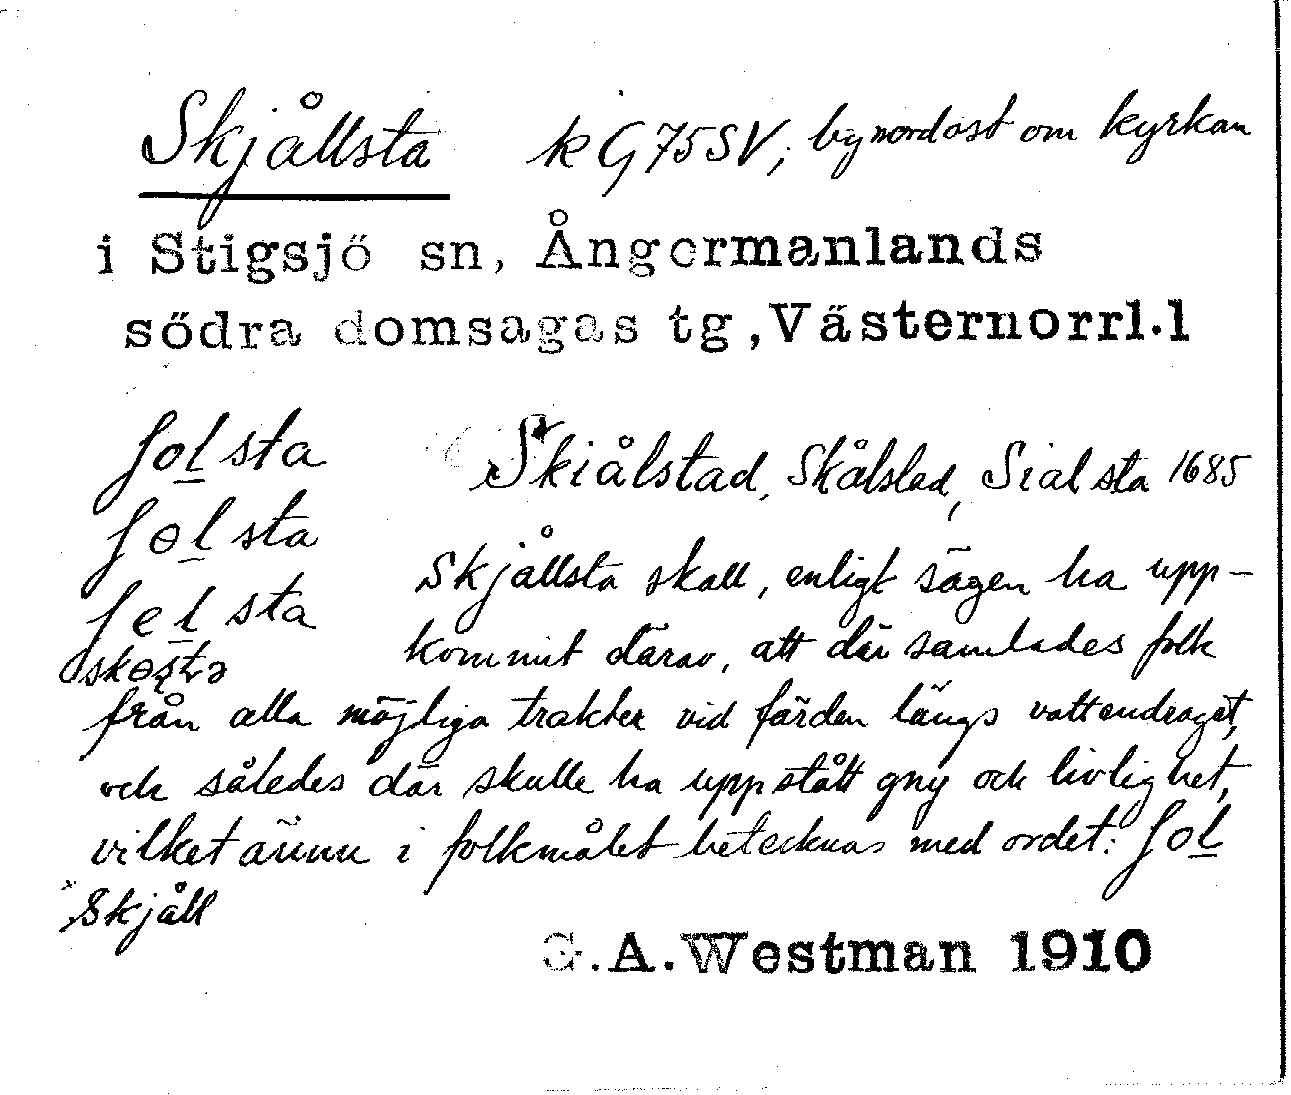 Skjållsta k G 75 SV, by nordost om kyrkan
i Stigsjö sn, Ångermanlands
södra domsagas tg, Västernorrl.l
ʃol̲sta Skiålstad, Skålstad, Sialsta 1685
ʃɵl̲sta
ʃel̲sta Skjållsta skall, enligt sägen ha upp-
kommit därav, att där samlades folk
från alla möjliga trakter vid färden längs vattendraget,
och således där skulle ha uppstått gny och livlighet,
vilket ännu i folkmålet betecknas med ordet: ʃol̲
Skjåll
G.A.Westman 1910